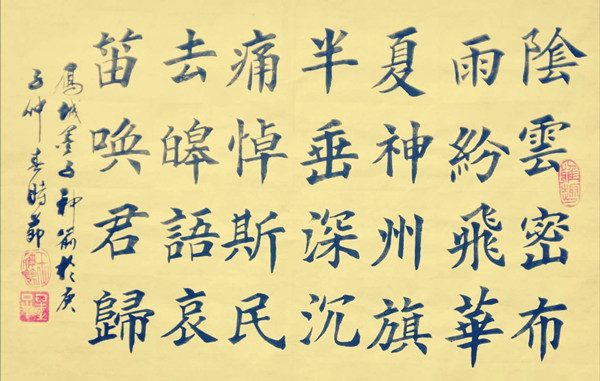 陰雲密布
雨紛飛華
夏神州旗
半垂深沉
痛悼斯民
去皞語哀
笛喚君歸
鳳城墨子神箭於庚
子仲春時節